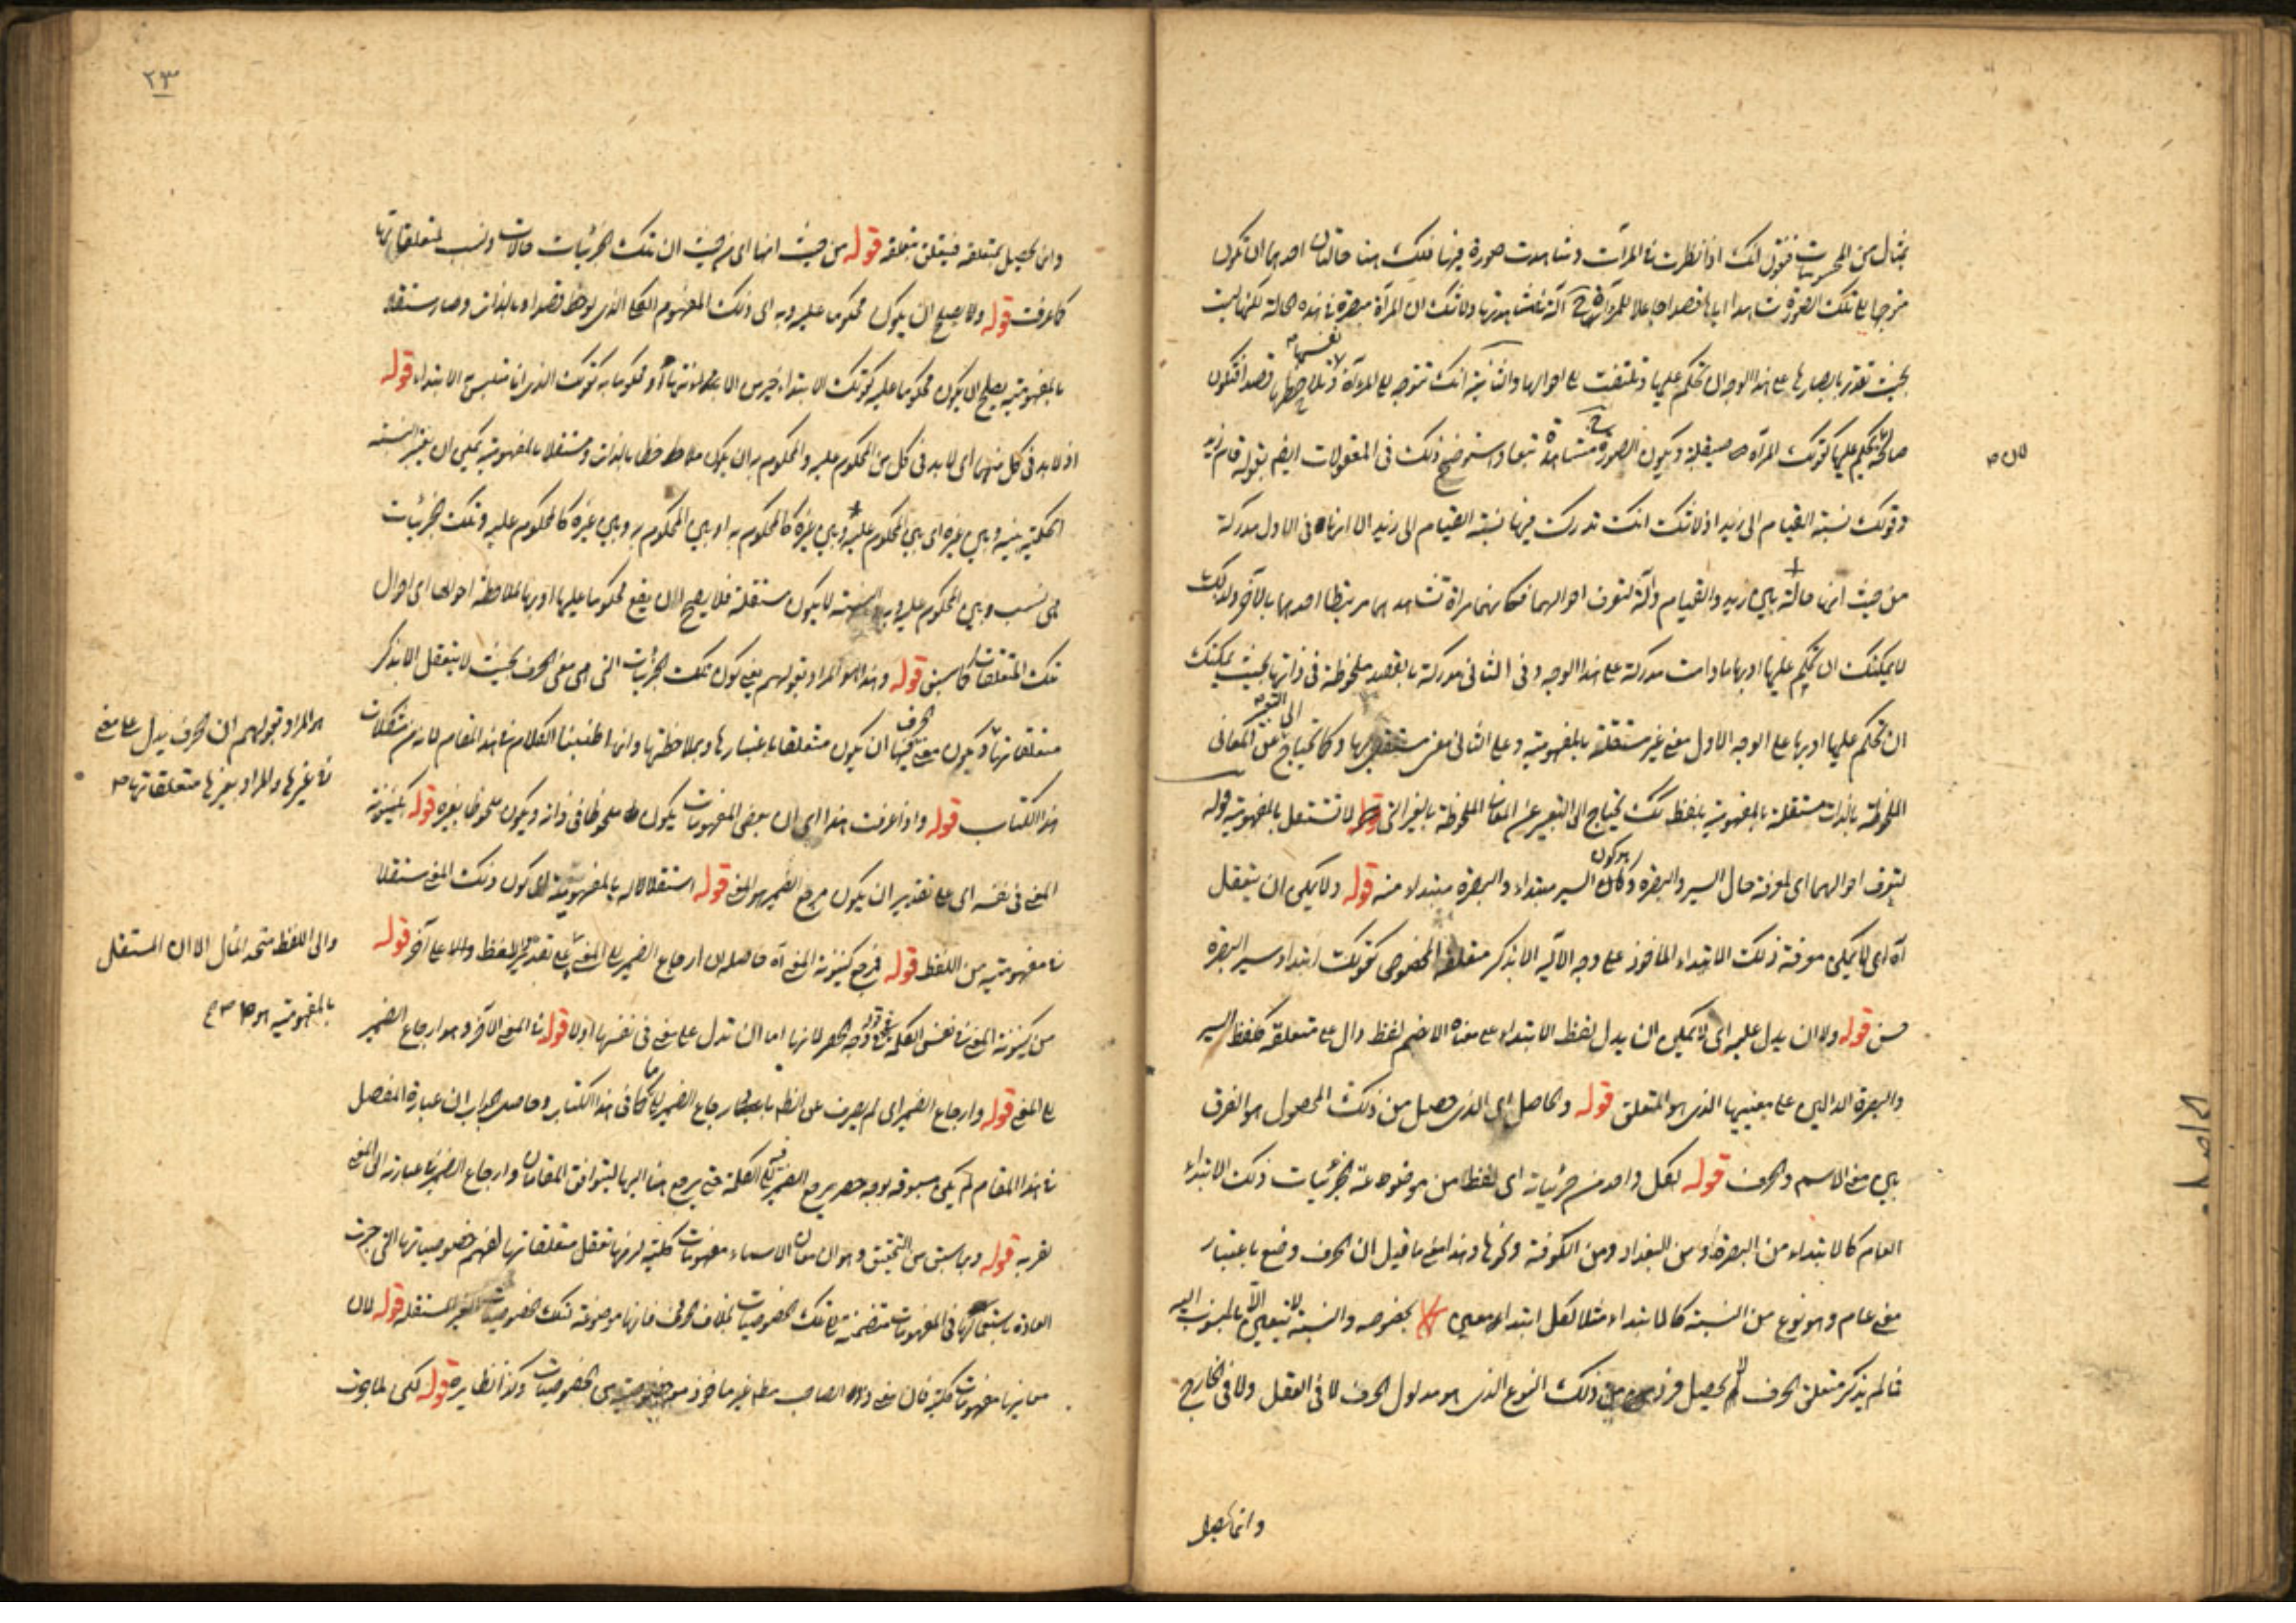 بمثال من المحسوسات فنقول انك اذا نظرت فى المرآت وشاهدت صورة فيها فلك هنا حالتان احدهما ان تكون
متوجها الى تلك الصورة مشاهدا اياها قصدا جاعلا للمرآة ح آلة فى مشاهدتها ولا شك ان المرآة مبصرة فى هذه الحالة لكنها ليست
بحيث تقدر بابصارها على هذا الوجه ان تحكم عليها وتلتفت الى احوالها والثانية انك تتوجه الى المرآة نفسها وتلاحظها قصدا فتكون
صالحة لان تحكم عليها كقولك المرآة صيقلية وتكون الصورة ح مشاهدة تبعا واستوضح ذلك فى المعقولات ايضا بقوله قام زيد
وقولك نسبة القيام الى زيد اذ لا شك انك تدرك فيها نسبة القيام الى زيد الا انها فى الاول مدركة
من حيث انها حالة بين زيد والقيام وآلة لتعرف احوالهما فكانهما مرآة تشاهدهما مرتبطا احدهما بالآخر ولذلك
لا يمكنك ان تحكم عليها او بها ما دامت مدركة على هذا الوجه وفى الثانى مدركة بالقصد ملحوظة فى ذاتها بحيث يمكنك
ان تحكم عليها او بها على الوجه الاول معنى غير مستقلة بالمفهومية وعلى الثانى معنى مستقل بها وكما تحتاج الى التعبير عن المعانى
الملحوظة بالذات مستقلة بالمفهومية بلفظ كك تحتاج الى التعبير عن المعانى الملحوظة بالغير التى لا تستقل بالمفهومية قوله
لتعرف احوالهما اى لمعرفة حال السير والبصرة وهو كون السير مبتداء والبصرة مبتداء منه قوله ولا يمكن ان يتعقل
اه اى لا يمكن معرفة ذلك الابتداء المأخوذ على وجه الآلية الا بذكر متعلقه المخصوص كقولك ابتداء سير البصرة
حسن قوله ولا ان يدل عليه اى لا يمكن ان يدل لفظ الابتداء على معناه الا بضم لفظ دال على متعلقه كلفظ السير
والبصرة الدالين على معنييها الذى هو المتعلق قوله والحاصل اى الذى حصل من ذلك المحصول هو الفرق
بين معنى الاسم والحرف قوله لكل واحد من جزئياته اى لفظ من موضوعة لجزئيات ذلك الابتداء
العام كالابتداء من البصرة او من البغداد ومن الكوفة ونحوها وهذا معنى ما قيل ان الحرف وضع باعتبار
معنى عام وهو نوع من النسبة كالابتداء مثلا لكل ابتداء معين بخصوصه والنسبة لا تتعين الا بالمنسوب اليه
فما لم يذكر متعلق الحرف لا يحصل فرد من ذلك النوع الذى هو مدلول الحرف لا فى العقل ولا فى الخارج
وانما يحصل
٢٣
وانما يحصل بمتعلقه فيتعلق بتعلقه قوله من حيث انها اى من حيث ان تلك الجزئيات حالات ونسب لمتعلقاتها
كما عرفت قوله ولا يصلح ان يكون محكوما عليه وبه اى ذلك المفهوم الكلى الذى لوحظ قصدا وبالذات وصار مستقلا
بالمفهومية يصلح ان يكون محكوما عليه كقولك الابتداء خير من الانتهاء او محكوما به كقولك الذى انا متلبس به الابتداء قوله
اذ لا بد فى كل منهما اى لا بد فى كل من المحكوم عليه والمحكوم به ان يكون ملاحظا بالذات ومستقلا بالمفهومية ليمكن ان يعتبر النسبة
الحكمية بينه وبين غيره اى بين المحكوم عليه وبين غيره كالمحكوم به او بين المحكوم به وبين غيره كالمحكوم عليه وتلك الجزئيات
هى نسب وبين المحكوم عليه وبه والنسبة لا يكون مستقلة فلا يصلح لان يقع محكوما عليها او بها لملاحظة احوالها اى احوال
تلك المتعلقات كما سبق قوله وهذا هو المراد بقولهم يعنى كون تلك الجزئيات التى هى معنى الحرف بحيث لا يتعقل الا بذكر
متعلقاتها ويكون معنى الحرف فيها ان يكون متعلقا باعتبارها وبملاحظتها وانما اطنبنا الكلام فى هذا المقام لانه من مشكلات
هذا الكتاب قوله واذا عرفت هذا اى ان بعض المفهومات يكون ملحوظا فى ذاته ويكون ملحوظا بغيره قوله بكينونة
المعنى فى نفسه اى على تقدير ان يكون مرجع الضمير هو المعنى قوله استقلاله بالمفهومية اى كون ذلك المعنى مستقلا
فى مفهوميته من اللفظ قوله فمرجع كينونة المعنى اه حاصله ان ارجاع الضمير الى المعنى على تقدير اللفظ والا على آخر قوله
من كينونة المعنى فى نفس الكلمة وجه الحصر لانها اما ان تدل على معنى فى نفسها اولا قوله فى المعنى الآخر وهو ارجاع الضمير
الى المعنى قوله وارجاع الضمير اى لم يصرف عن الظاهر بارجاع الضمير الى ما كما فى هذا الكتاب وحاصل الجواب ان عبارة المفصل
فى هذا المقام لم يكن مسبوقه بوجه حصر يرجع الضمير فيه الى الكلمة حتى يرجع هنا اليها ليتوافق المقامان وارجاع الضمير فى عبارته الى المعنى
لقربه قوله وبما سبق من التحقيق وهو ان معانى الاسماء مفهومات كلية لزمها تعقل متعلقاتها لفهم خصوصياتها التى جرت
العادة باستعمالها فى المفهومات متضمنة تلك الخصوصيات بخلاف الحرف فانها موضوعة لتلك الخصوصيات الغير المستقله قوله لان
معانيها مفهومات كلية فان معنى ذو الصاحب مط غير مأخوذ من الخصوصيات وكذا نظايره قوله لكن لما جرت
هو المراد بقولهم ان الحرف يدل على معنى
فى غيرها والمراد بغيرها متعلقاتها
والى اللفظ متحد المأل الا ان المستقل
بالمفهومية هو